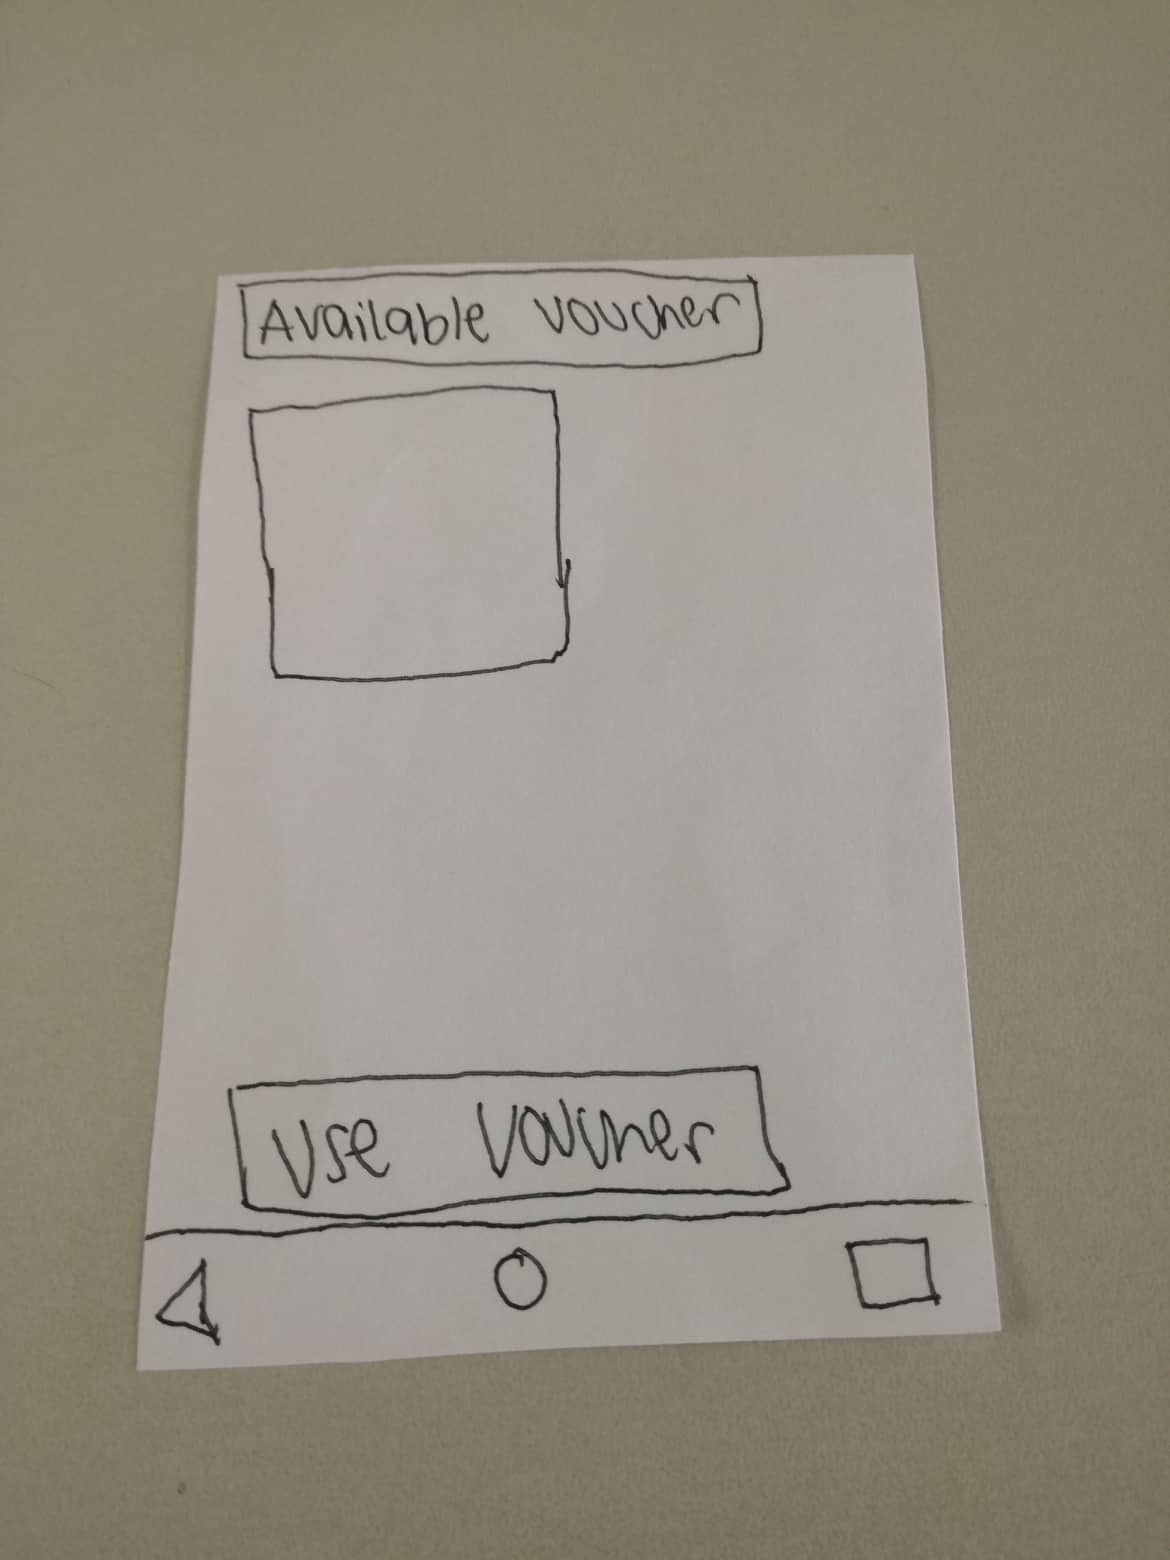 Available voucher
Use Voucher